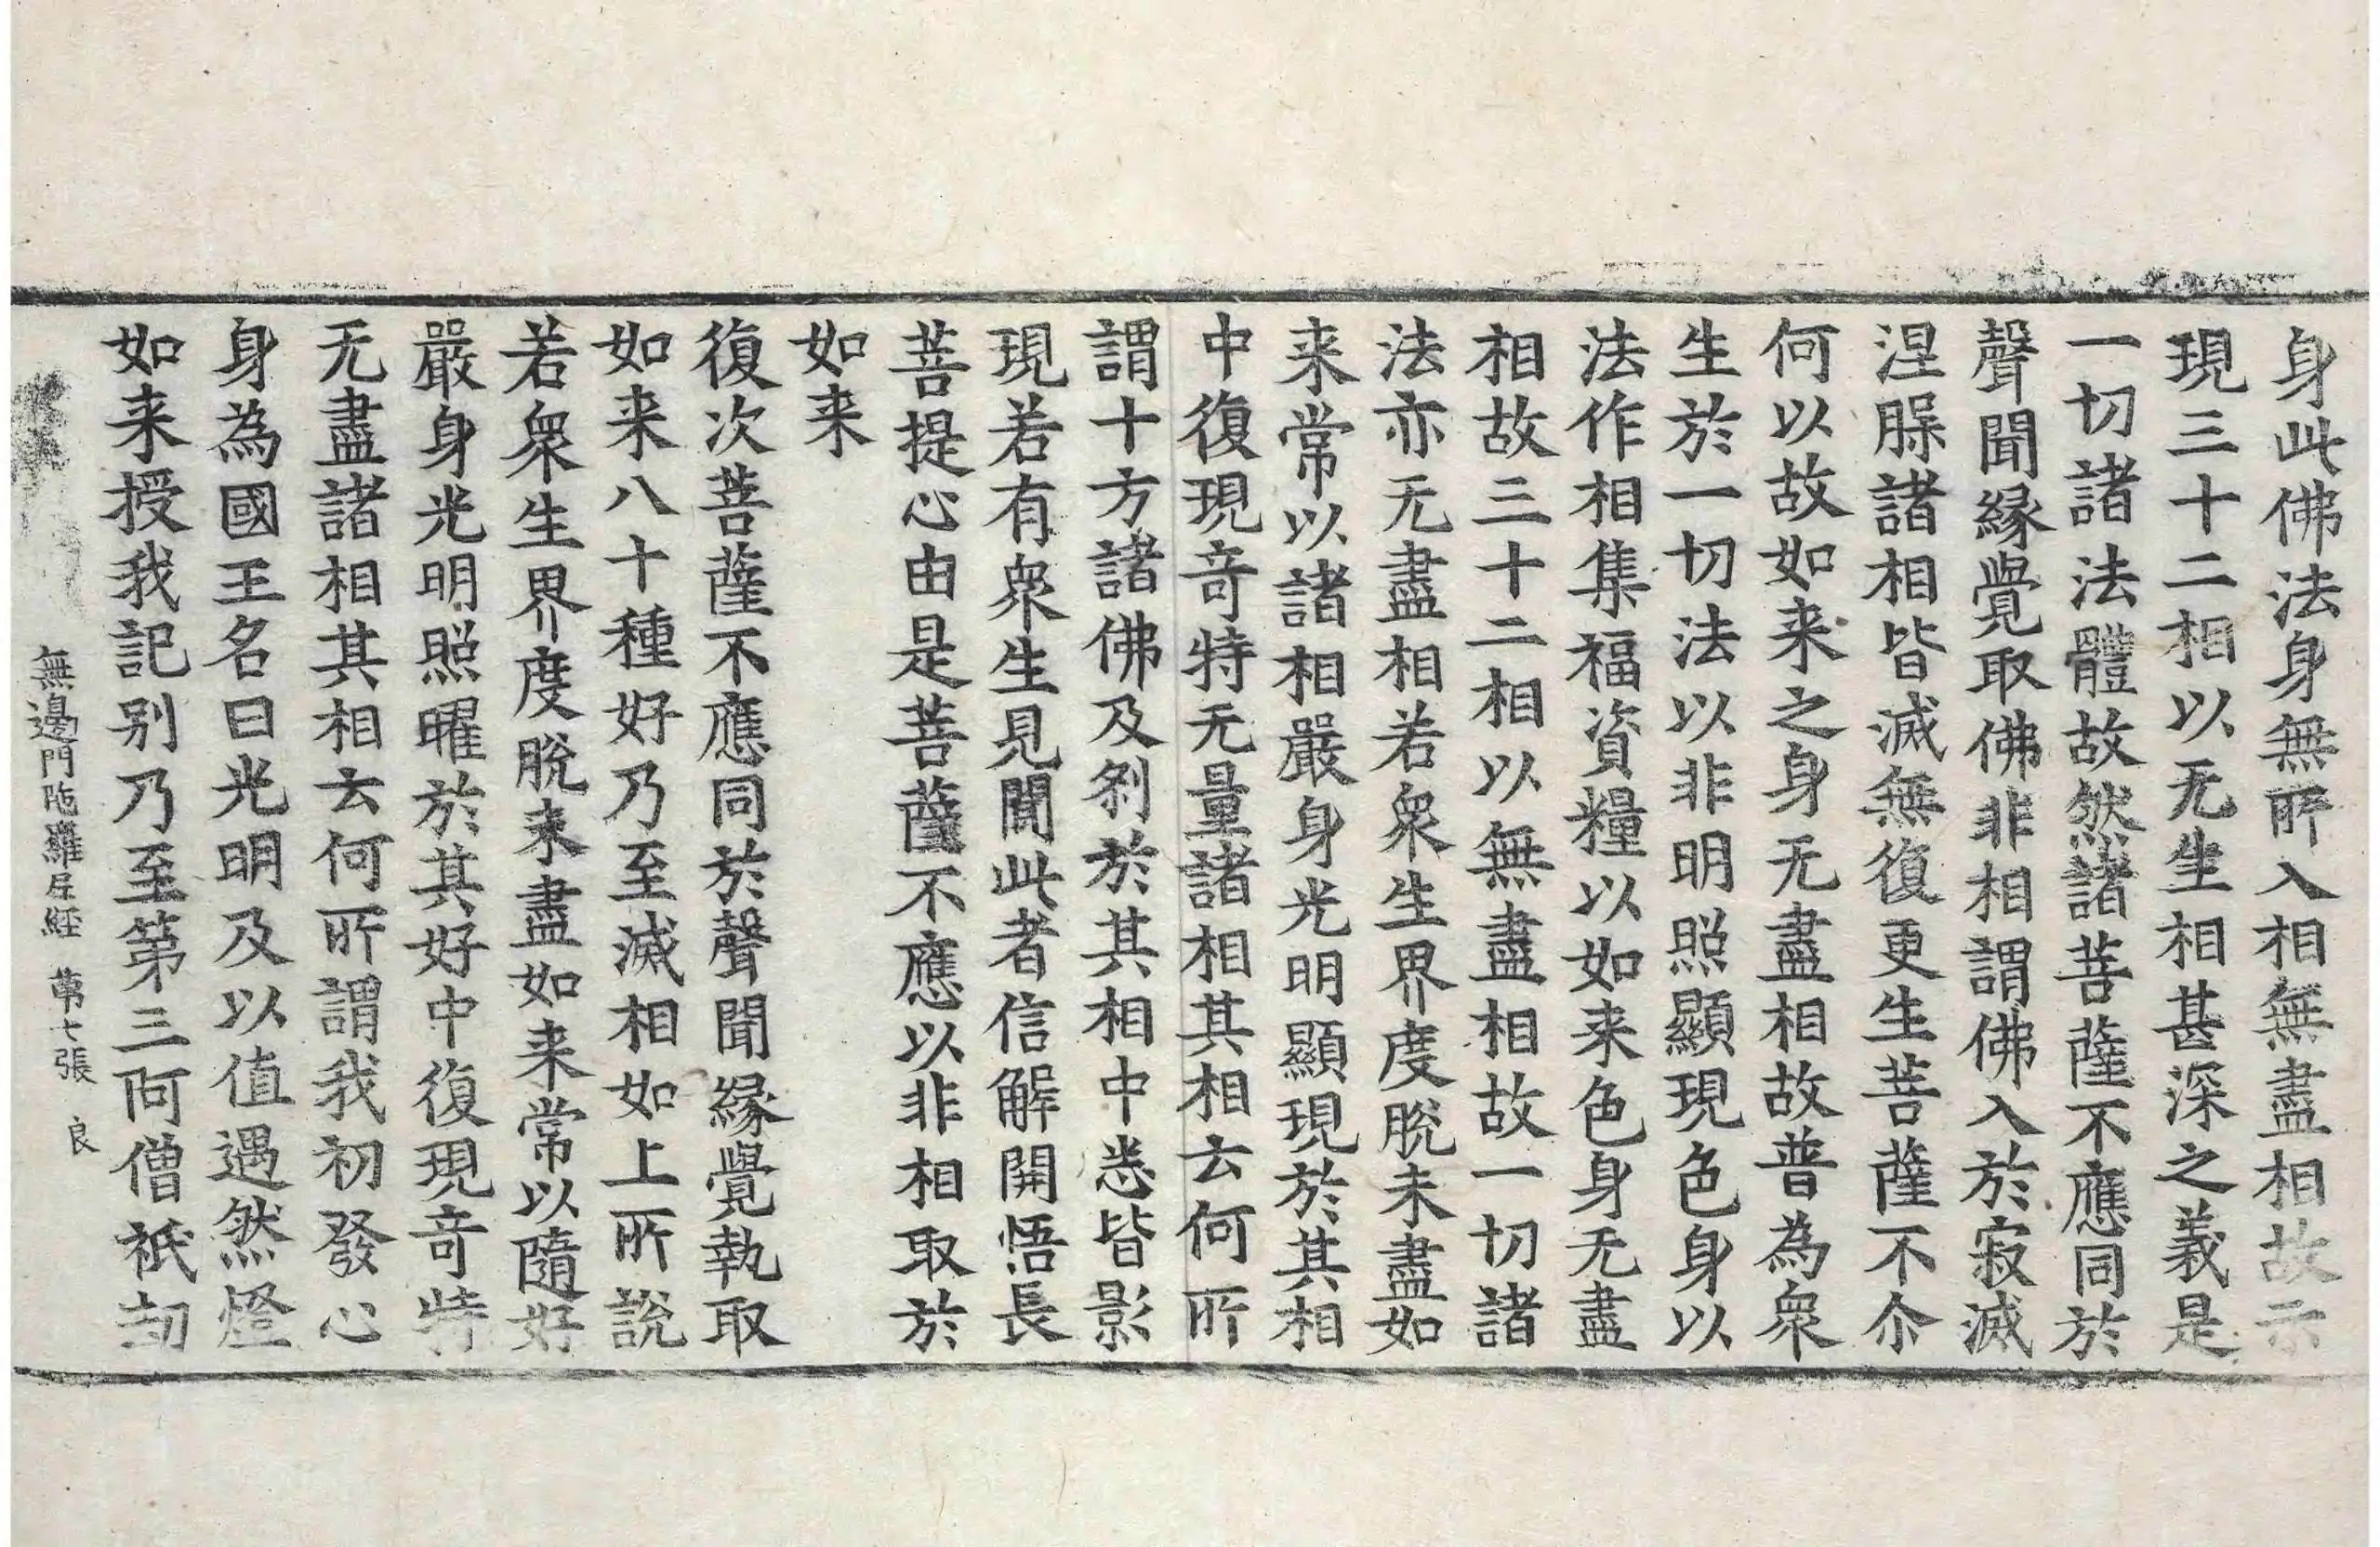 身此佛法身無所入相無盡相故示
現三十二相以无生相甚深之義是
一切諸法體故然諸菩薩不應同於
聲聞緣覺取佛非相謂佛入於寂滅
涅槃諸相皆滅無復更生菩薩不尒
何以故如来之身无盡相故普為衆
生於一切法以非明照顯現色身以
法作相集福資糧以如来色身无盡
相故三十二相以無盡相故一切諸
法亦无盡相若衆生界度脫未盡如
来常以諸相嚴身光明顯現於其相
中復現竒特无量諸相其相云何所
謂十方諸佛及刹於其相中悉皆影
現若有衆生見聞此者信解開悟長
菩提心由是菩薩不應以非相取於
如来
復次菩薩不應同於聲聞緣覺執取
如来八十種好乃至滅相如上所說
若衆生界度脫未盡如来常以隨好
嚴身光明照曜於其好中復現竒特
无盡諸相其相云何所謂我初發心
身為國王名曰光明及以值遇然燈
如来授我記别乃至第三阿僧祇劫
無邊門陁羅尼經 苐七張 良